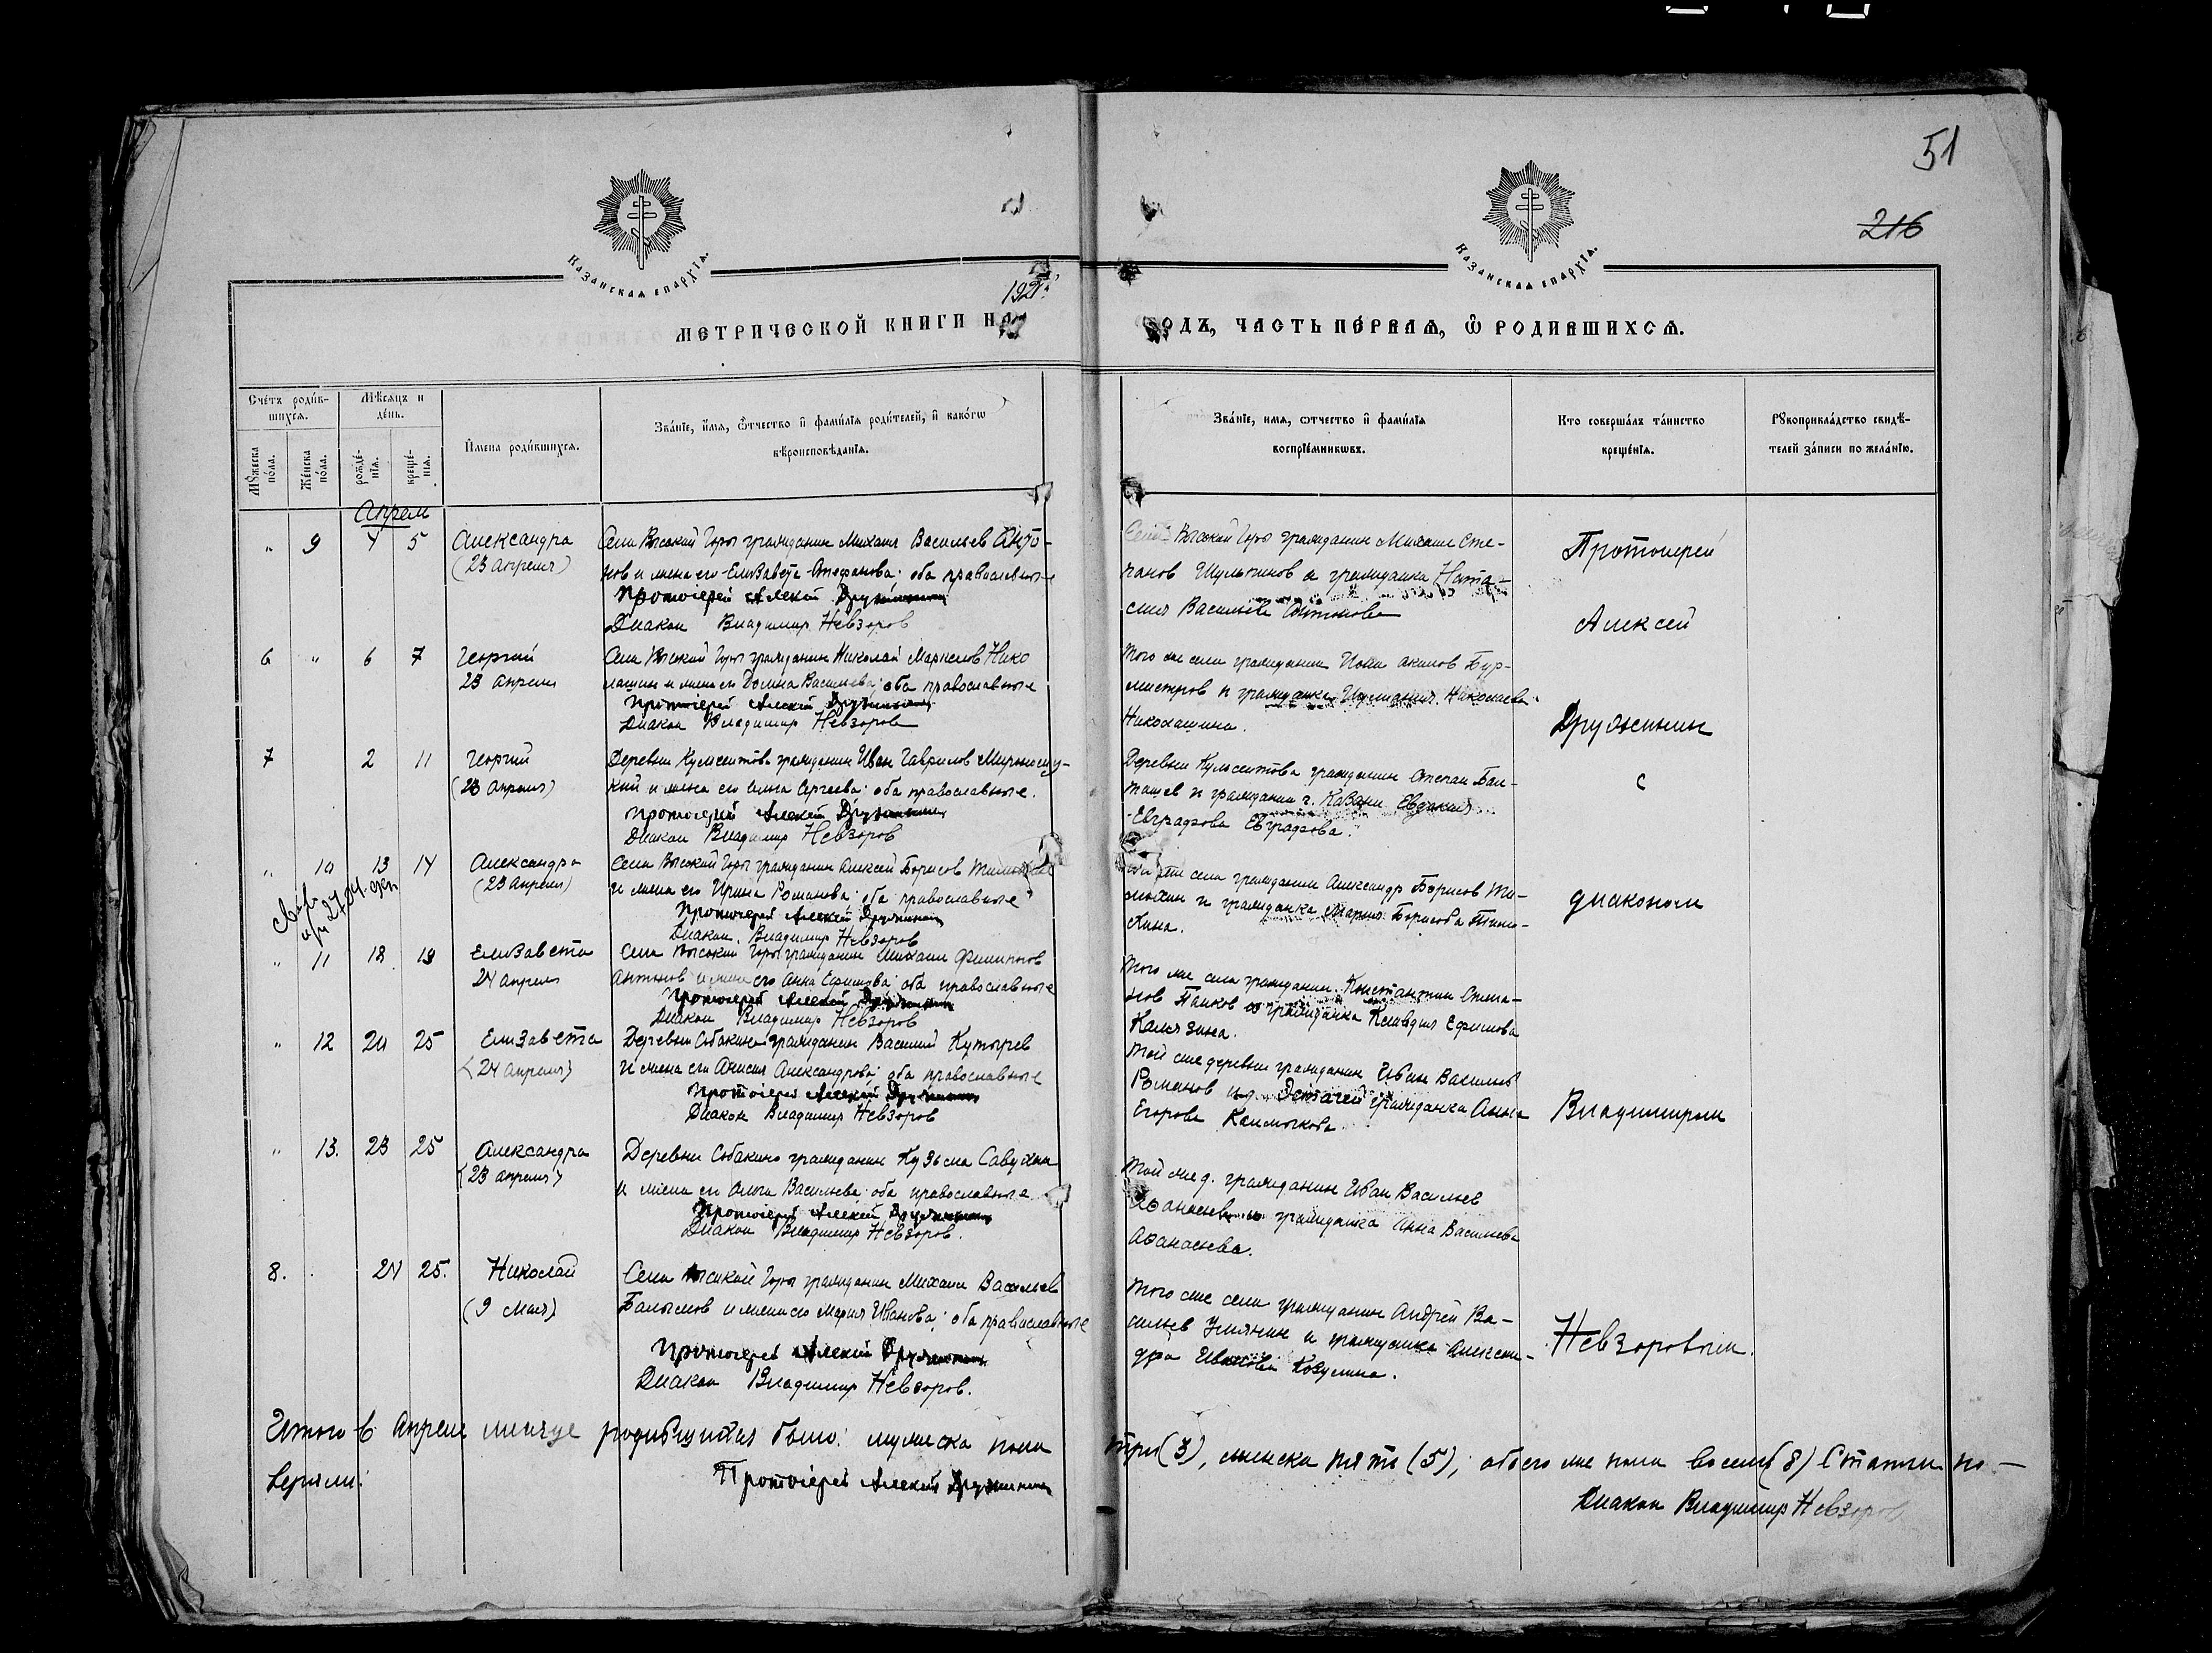 51
216
Казанская епархїа.
Казанская епархїа.
192
Метрической книги на
одъ, часть пе́рвая, ѡ҆ родившихся.
Сче́тъ роди́вшихся.
Мѣ́сяцъ и де́нь.
Му́жеска по́ла.
Же́нска по́ла.
рожде́нїя.
креще́нїя.
И҆мена роди́вшихся.
Зва́нїе, и҆́мя, ѻ҆́тчество и҆ фами́лїя роди́телей, и҆ како́гѡ
вѣроисповѣ́данїя.
Зва́нїе, имя, ѻтчество и҆ фами́лїя
воспрїе́мникѡвъ.
Кто соверша́лъ та́инство
креще́нїя.
Рꙋкоприкла́дство свидѣ́-
телей за́писи по жела́нїю.
Апрель
" 9 4 5 Александра
(23 апреля)
Села Высокой Горы гражданин Михаил Васильев Анто-
нов и жена его Елизавета Стефанова; оба православные
Протоіерей Алексій Дружинин
Диакон Владимир Невзоров
Села Высокой Горы гражданин Михаил Сте-
панов и гражданка
Васильева Антонова
6 " 6 7 Георгий
23 апреля
Села Высокой Горы гражданин Николай Маркелов Нико
лашин и жена его Домна Васильева; оба православные
Протоіерей Алексій Дружинин
Диакон Владимир Невзоров
Того же села гражданин Иоан Акимов Бур-
мистров и гражданка Николаева
Николашина.
7 2 11 Георгий
(23 апреля)
Деревни Кульсеитова гражданин Иван Гаврилов
и жена его Анна Сергеева; оба православные.
Протоіерей Алексій Дружинин
Диакон Владимир Невзоров
Деревни Кульсеитова гражданин Степан Бал-
ташев и гражданка г. Казани Евдокия
Евграфова Евграфова.
" 10 13 14 Александра
(23 апреля)
Села Высокой Горы гражданин Алексей Борисов
и жена его Ирина Романова; оба православные
Протоіерей Алексій Дружинин
Диакон Владимир Невзоров
села гражданин Александр Борисов Ти-
и гражданка Мария Борисова
кина.
" 11 18 19 Елизавета
24 апреля
Села Высокой Горы гражданин Михаил Филиппов
Антонов и жена его Анна Ефимова; оба православные
Протоіерей Алексій Дружинин
Диакон Владимир Невзоров
Того же села гражданин Константин Степа-
нов Панков и гражданка Клавдия Ефимова
Калязина.
" 12 20 25 Елизавета
(24 апреля)
Деревни Собакино гражданин Василий Кутырев
и жена его Анисия Александрова; оба православные
Протоіерей Алексій Дружинин
Диакон Владимир Невзоров
Той же деревни гражданин Иван Васильев
Романов и д. гражданка Анна
Егорова Калмыкова.
" 13. 23 25 Александра
(23 апреля)
Деревни Собакино гражданин Кузьма Савухин
и жена его Ольга Васильева; оба православные
Протоіерей Алексій Дружинин
Диакон Владимир Невзоров.
Той же д. гражданин Иван Васильев
Афанасьев и гражданка Анна Васильева
Афанасьева.
8. 24 25. Николай
(9 мая)
Села Высокой Горы гражданин Михаил Васильев
Балымов и жена его Мария Иванова; оба православные
Протоіерей Алексій Дружинин
Диакон Владимир Невзоров.
Того же села гражданин Андрей Ва-
сильев и гражданка Алексан-
дра Иванова Козулина.
Протоиерей
Алексей
Дружинин
с
диаконом
Владимиром
Невзоровым.
Итого в Апреле месяце родившихся было: мужеска пола
три (3), женска пять (5), обоего же пола восемь (8) Статьи по-
веряли:
Протоіерей Алексій Дружинин
Диакон Владимир Невзоров